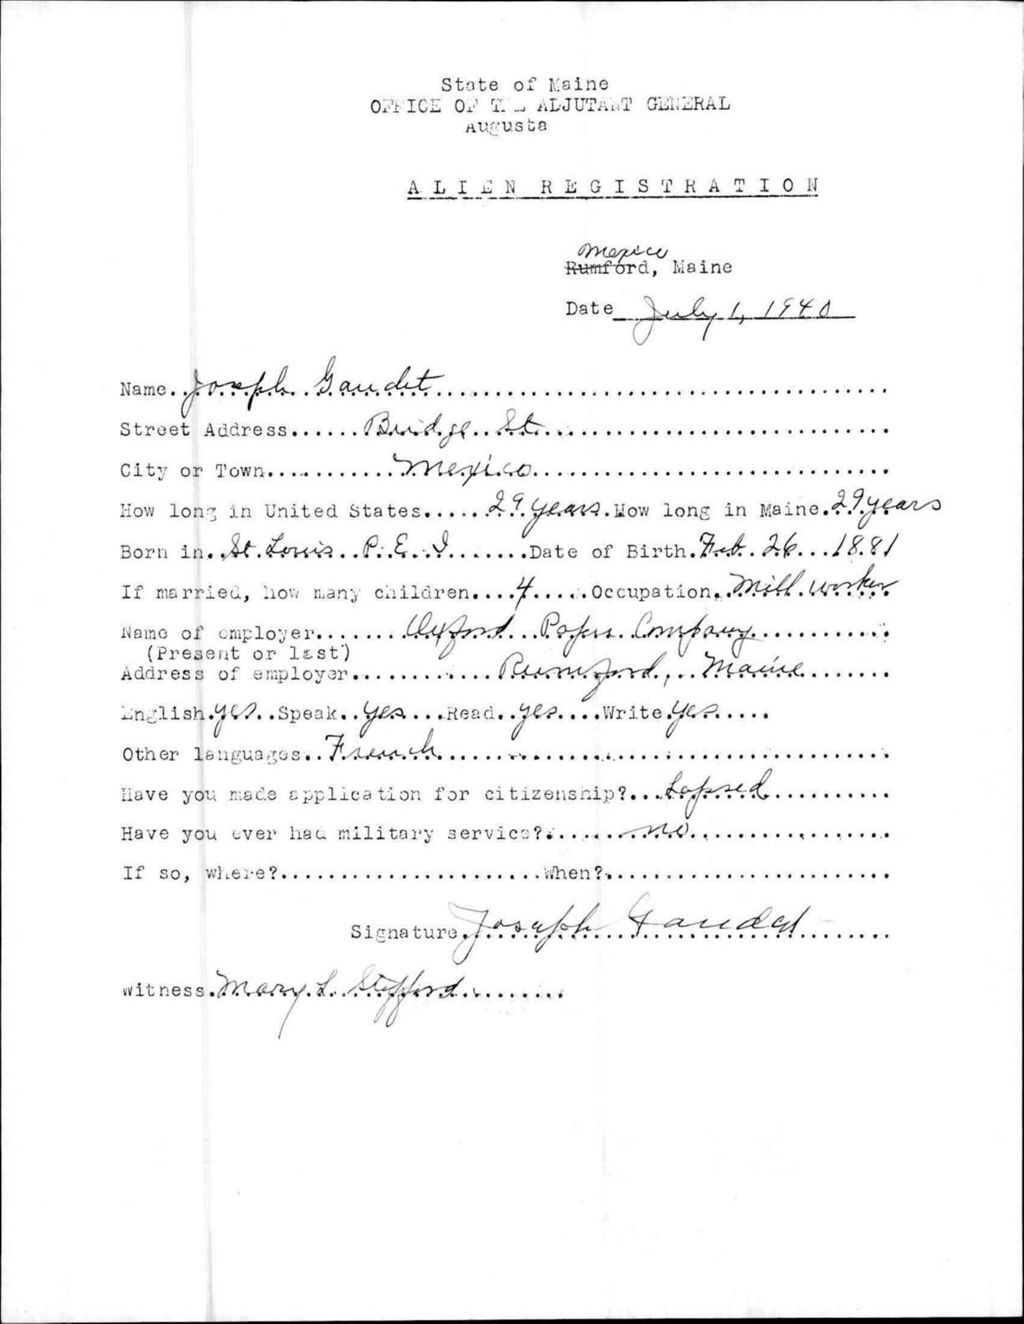 State of Maine
OFFICE OF THE ADJUTANT GENERAL
Augusta
ALIEN REGISTRATION
Mexico
Rumford, Maine
Date July 1, 1940
Name..Joseph Gaudet
Street Address......Bridge St.
City or Town...........Mexico
How long in United States.....29 years.How long in Maine.29 years
Born in..St. Louis..P.E.I.......Date of Birth.Feb. 26...1881
If married, how many children....4.....Occupation..Mill worker
Name of employer.......Oxford Paper Company
(Present or last)
Address of employer............Rumford, Maine
English.yes..Speak..yes...Read..yes....Write.yes.....
Other languages..French
Have you made application for citizenship?...Lapsed
Have you ever had military service?.......no
If so, where?.......................When?
Signature.Joseph Gaudet
Witness.Mary L. Stefford